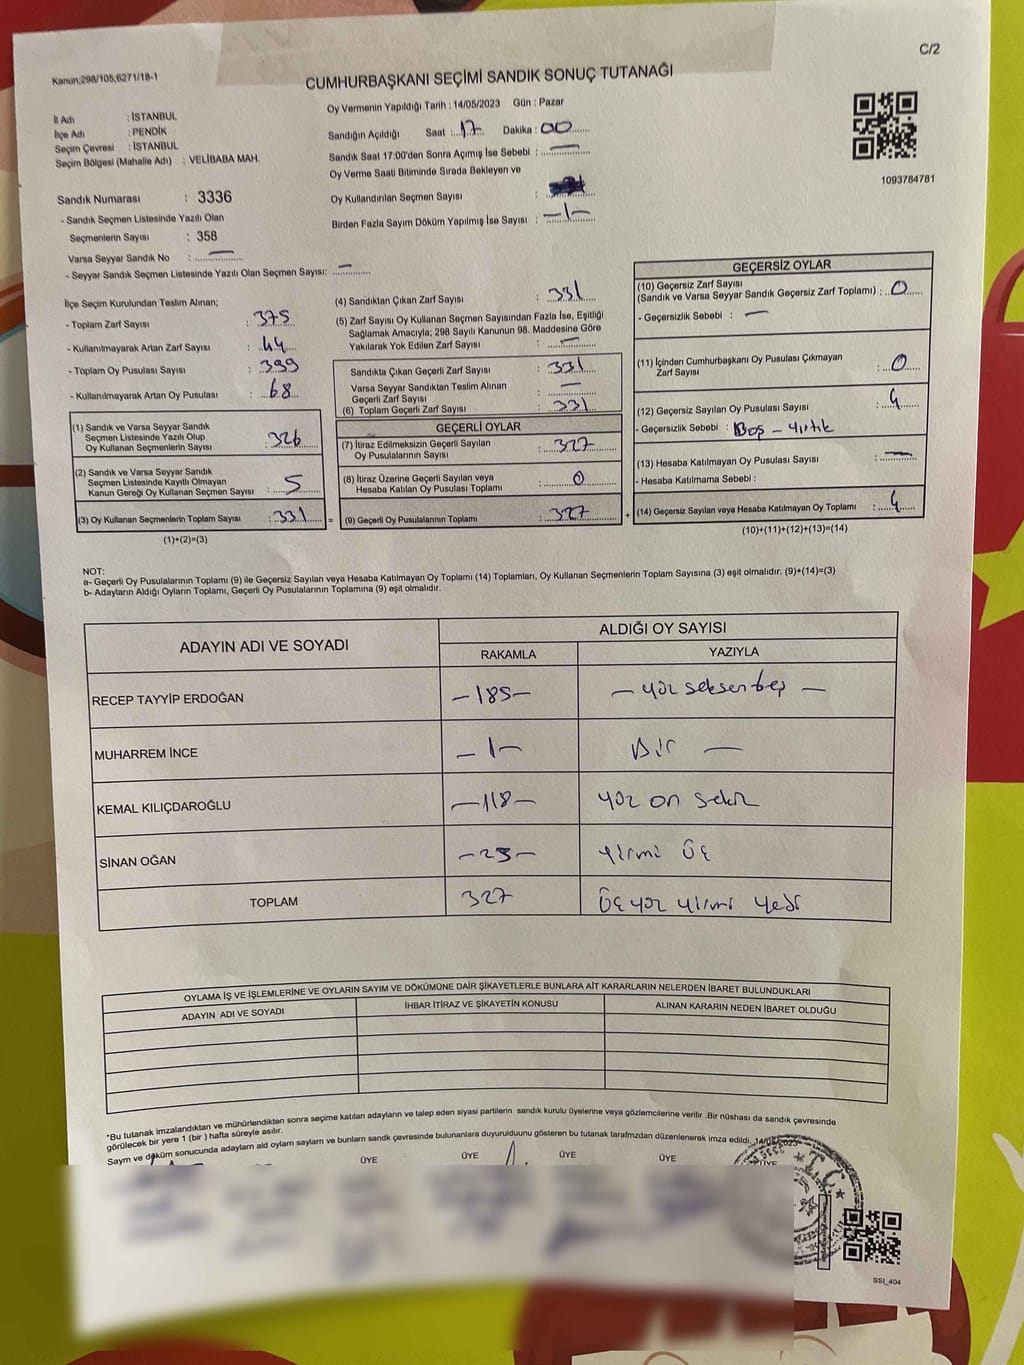 C/2
Kanun;298/105;6271/18-1
CUMHURBAŞKANI SEÇİMİ SANDIK SONUÇ TUTANAĞI
İl Adı : İSTANBUL
İlçe Adı : PENDİK
Seçim Çevresi : İSTANBUL
Seçim Bölgesi (Mahalle Adı) : VELİBABA MAH.
Oy Vermenin Yapıldığı Tarih : 14/05/2023 Gün : Pazar
Sandığın Açıldığı Saat :..17.. Dakika : 00
Sandık Saat 17:00'den Sonra Açımış İse Sebebi : —
Oy Verme Saati Bitiminde Sırada Bekleyen ve
Oy Kullandırılan Seçmen Sayısı :
Birden Fazla Sayım Döküm Yapılmış İse Sayısı : —1—
1093784781
Sandık Numarası : 3336
- Sandık Seçmen Listesinde Yazılı Olan
Seçmenlerin Sayısı : 358
Varsa Seyyar Sandık No : —
- Seyyar Sandık Seçmen Listesinde Yazılı Olan Seçmen Sayısı: —
İlçe Seçim Kurulundan Teslim Alınan;
- Toplam Zarf Sayısı : 375
- Kullanılmayarak Artan Zarf Sayısı : 44
- Toplam Oy Pusulası Sayısı : 399
- Kullanılmayarak Artan Oy Pusulası : 68
(1) Sandık ve Varsa Seyyar Sandık
Seçmen Listesinde Yazılı Olup
Oy Kullanan Seçmenlerin Sayısı : 326
(2) Sandık ve Varsa Seyyar Sandık
Seçmen Listesinde Kayıtlı Olmayan
Kanun Gereği Oy Kullanan Seçmen Sayısı : 5
(3) Oy Kullanan Seçmenlerin Toplam Sayısı : 331
(1)+(2)=(3)
(4) Sandıktan Çıkan Zarf Sayısı : 331
(5) Zarf Sayısı Oy Kullanan Seçmen Sayısından Fazla İse, Eşitliği
Sağlamak Amacıyla; 298 Sayılı Kanunun 98. Maddesine Göre
Yakılarak Yok Edilen Zarf Sayısı : —
Sandıkta Çıkan Geçerli Zarf Sayısı : 331
Varsa Seyyar Sandıktan Teslim Alınan
Geçerli Zarf Sayısı : —
(6) Toplam Geçerli Zarf Sayısı : 331
GEÇERLİ OYLAR
(7) İtiraz Edilmeksizin Geçerli Sayılan
Oy Pusulalarının Sayısı : 327
(8) İtiraz Üzerine Geçerli Sayılan veya
Hesaba Katılan Oy Pusulası Toplamı : 0
= (9) Geçerli Oy Pusulalarının Toplamı : 327 +
GEÇERSİZ OYLAR
(10) Geçersiz Zarf Sayısı
(Sandık ve Varsa Seyyar Sandık Geçersiz Zarf Toplamı) : 0
- Geçersizlik Sebebi : —
(11) İçinden Cumhurbaşkanı Oy Pusulası Çıkmayan
Zarf Sayısı : 0
(12) Geçersiz Sayılan Oy Pusulası Sayısı : 4
- Geçersizlik Sebebi : Boş - yırtık
(13) Hesaba Katılmayan Oy Pusulası Sayısı : —
- Hesaba Katılmama Sebebi :
(14) Geçersiz Sayılan veya Hesaba Katılmayan Oy Toplamı : 4
(10)+(11)+(12)+(13)=(14)
NOT:
a- Geçerli Oy Pusulalarının Toplamı (9) ile Geçersiz Sayılan veya Hesaba Katılmayan Oy Toplamı (14) Toplamları, Oy Kullanan Seçmenlerin Toplam Sayısına (3) eşit olmalıdır. (9)+(14)=(3)
b- Adayların Aldığı Oyların Toplamı, Geçerli Oy Pusulalarının Toplamına (9) eşit olmalıdır.
ADAYIN ADI VE SOYADI ALDIĞI OY SAYISI
RAKAMLA YAZIYLA
RECEP TAYYİP ERDOĞAN —185— — yüz seksen beş —
MUHARREM İNCE —1— Bir —
KEMAL KILIÇDAROĞLU —118— yüz on sekiz
SİNAN OĞAN —23— yirmi üç
TOPLAM 327 Üç yüz yirmi yedi
OYLAMA İŞ VE İŞLEMLERİNE VE OYLARIN SAYIM VE DÖKÜMÜNE DAİR ŞİKAYETLERLE BUNLARA AİT KARARLARIN NELERDEN İBARET BULUNDUKLARI
ADAYIN ADI VE SOYADI İHBAR İTİRAZ VE ŞİKAYETİN KONUSU ALINAN KARARIN NEDEN İBARET OLDUĞU
*Bu tutanak imzalandıktan ve mühürlendikten sonra seçime katılan adayların ve talep eden siyasi partilerin sandık kurulu üyelerine veya gözlemcilerine verilir .Bir nüshası da sandık çevresinde
görülecek bir yere 1 (bir ) hafta süreyle asılır.
Sayım ve döküm sonucunda adayların ald oyların sayların ve bunların sandk çevresinde bulunanlara duyurulduunu gösteren bu tutanak tarafmzdan düzenlenerek imza edildi. 14/05/2023
ÜYE ÜYE ÜYE ÜYE ÜYE
T.C.
SSI_404